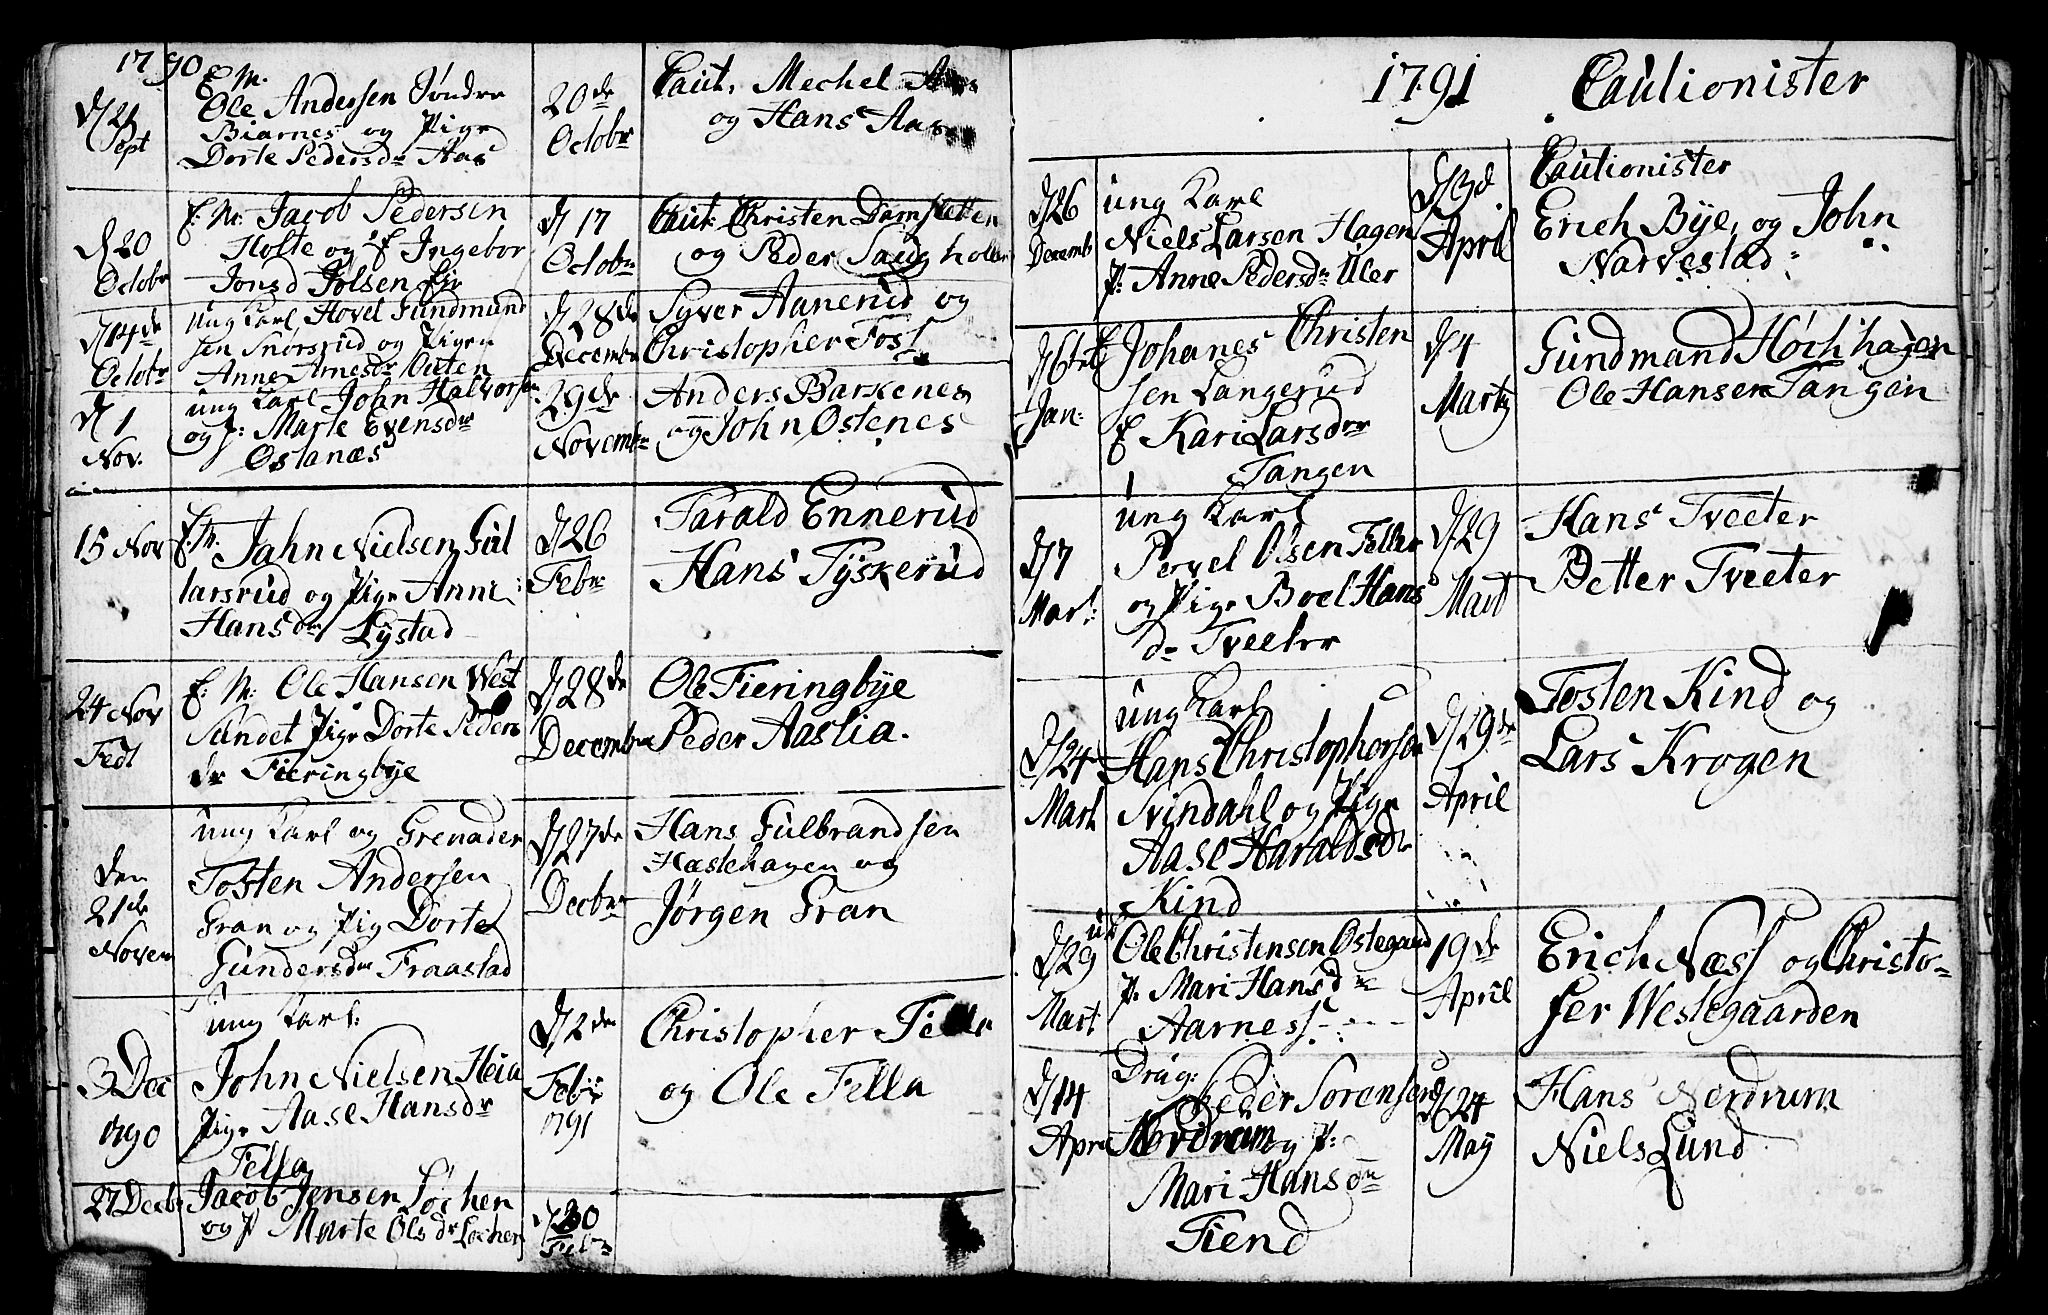 1790
D 21 Sept
E. M.
Ole Andersen Søndre
Biarnes og Pige
Dorte Pedersdr Aas
20de Octobr
Caut. Mechel
og Hans Aas
D 20 Octobr
E: M: Jacob Pedersen
Holte og E Ingebor
Jonsd Jølsen Eie
D 17 Octobr
Caut: Christen Damstetten
og Peder Saugholen
D 14de Octobr
ung Karl Hovel Gundmund
sen Snorsrud og Pigen
Anne Arnesdr Outen
D 28de Decembr
Syver Aanerud og
Christopher Foss
D 1 Nov.
ung Karl John Halvorsen
og P: Marte Evensdr
Ostanæs
29de Novembr
Anders Barkenes
og John Ostenes
15 Nov
E. M. Jahn Nielsen Gul
larsrud og Pige Anne
Hansdr Lystad
D 26 Febr
Tarald Ennerud
Hans Tyskerud
24 Nov
Fedt
E: M: Ole Hansen West
Sundet Pige Dorte Peders
dr Fieringbye
D 28de Decembr
Ole Fieringbye
Peder Aaslia.
den 21de Novem
ung Karl og Grenader
Tosten Andersen
Gran og Pig Dorte
Gundersdr Fraastad
D 27de Decbr
Hans Gulbrandsen
Hæstehagen og
Jørgen Gran
3 Dec 1790
ung Karl:
John Nielsen Heia
Pige Aase Hansdr
Fella
D 2de Feb: 1791
Christopher Fella
og Ole Fella
27 Decbr
Jacob Jensen Løchen
og P Marte Olsdr Løchen
D 20 Febr
1791 Cautionister
D 26 Decemb
ung Karl
Niels Larsen Hagen
P: Anne Pedersdr Uler
D 3d April
Cautionister
Erich Bye, og John
Narvestad
D 6te Jan:
E Johanes Christen
sen Langerud
E Kari Larsdr
Tangen
D 4 Marty
Gundmand Høchhagen
Ole Hansen Tangen
D 7 Mart:
ung Karl
Povel Olsen Fella
og Pige Boel Hans
dr Tveeter
D 29 Mart
Hans Tveeter
Petter Tveeter
D 24 Mart
ung Karl
Hans Christophersen
Svindahl og Pige
Aase Haraldsdr
Kind
D 29de April
Tosten Kind og
Lars Krogen
D 29 Mart
uk
Ole Christensen Ostegaard
P. Mari Hansdr
Aarness
19de April
Erich Næss og Christo-
fer Westegaarden
D 14 Apri
Drag:
Peder Sorensen
Nordrum og P:
Mari Hansdr
Fiend
D 24 May
Hans Nerdrum
Niels Lund